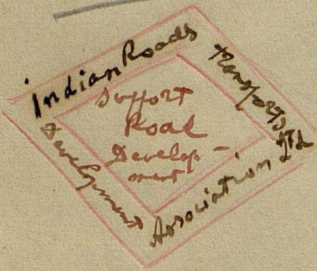 Indian Roads
Transports
Development
Association Ltd
Support
Road
Develop-
ment